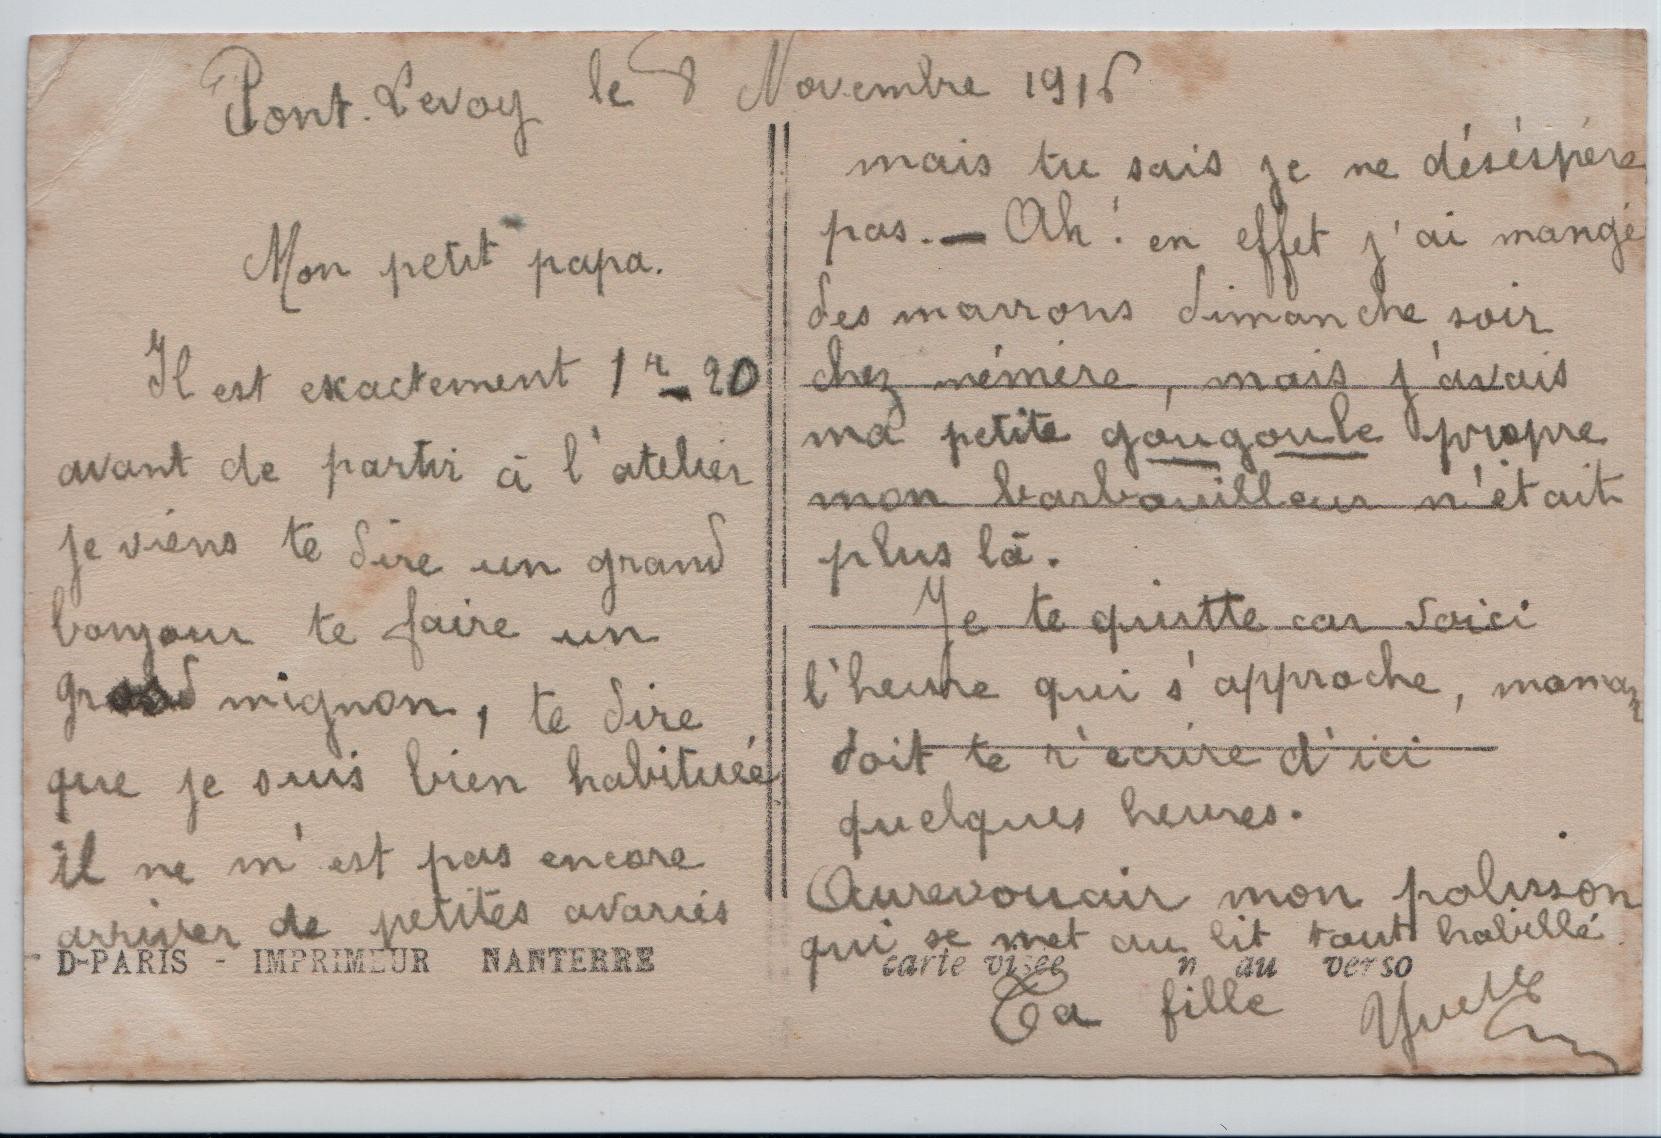 Pont. Levoy le 8 Novembre 1916
Mon petit papa.
Il est exactement 1h - 20
avant de partir à l'atelier
je viens te dire un grand
bonjour te faire un
grand mignon, te dire
que je suis bien habituée
il ne m'est pas encore
arriver de petites avaries
mais tu sais je ne déséspère
pas. — Ah! en effet j'ai mangé
des marrons dimanche soir
chez mémère, mais j'avais
ma petite gougoule propre
mon barbouilleur n'était
plus là.
Je te quitte car voici
l'heure qui s'approche, maman
doit te r'écrire d'ici
quelques heures.
Aurevouair mon polisson
qui se met au lit tout habillé
Ta fille Yvette
D-PARIS - IMPRIMEUR NANTERRE
carte visée n au verso